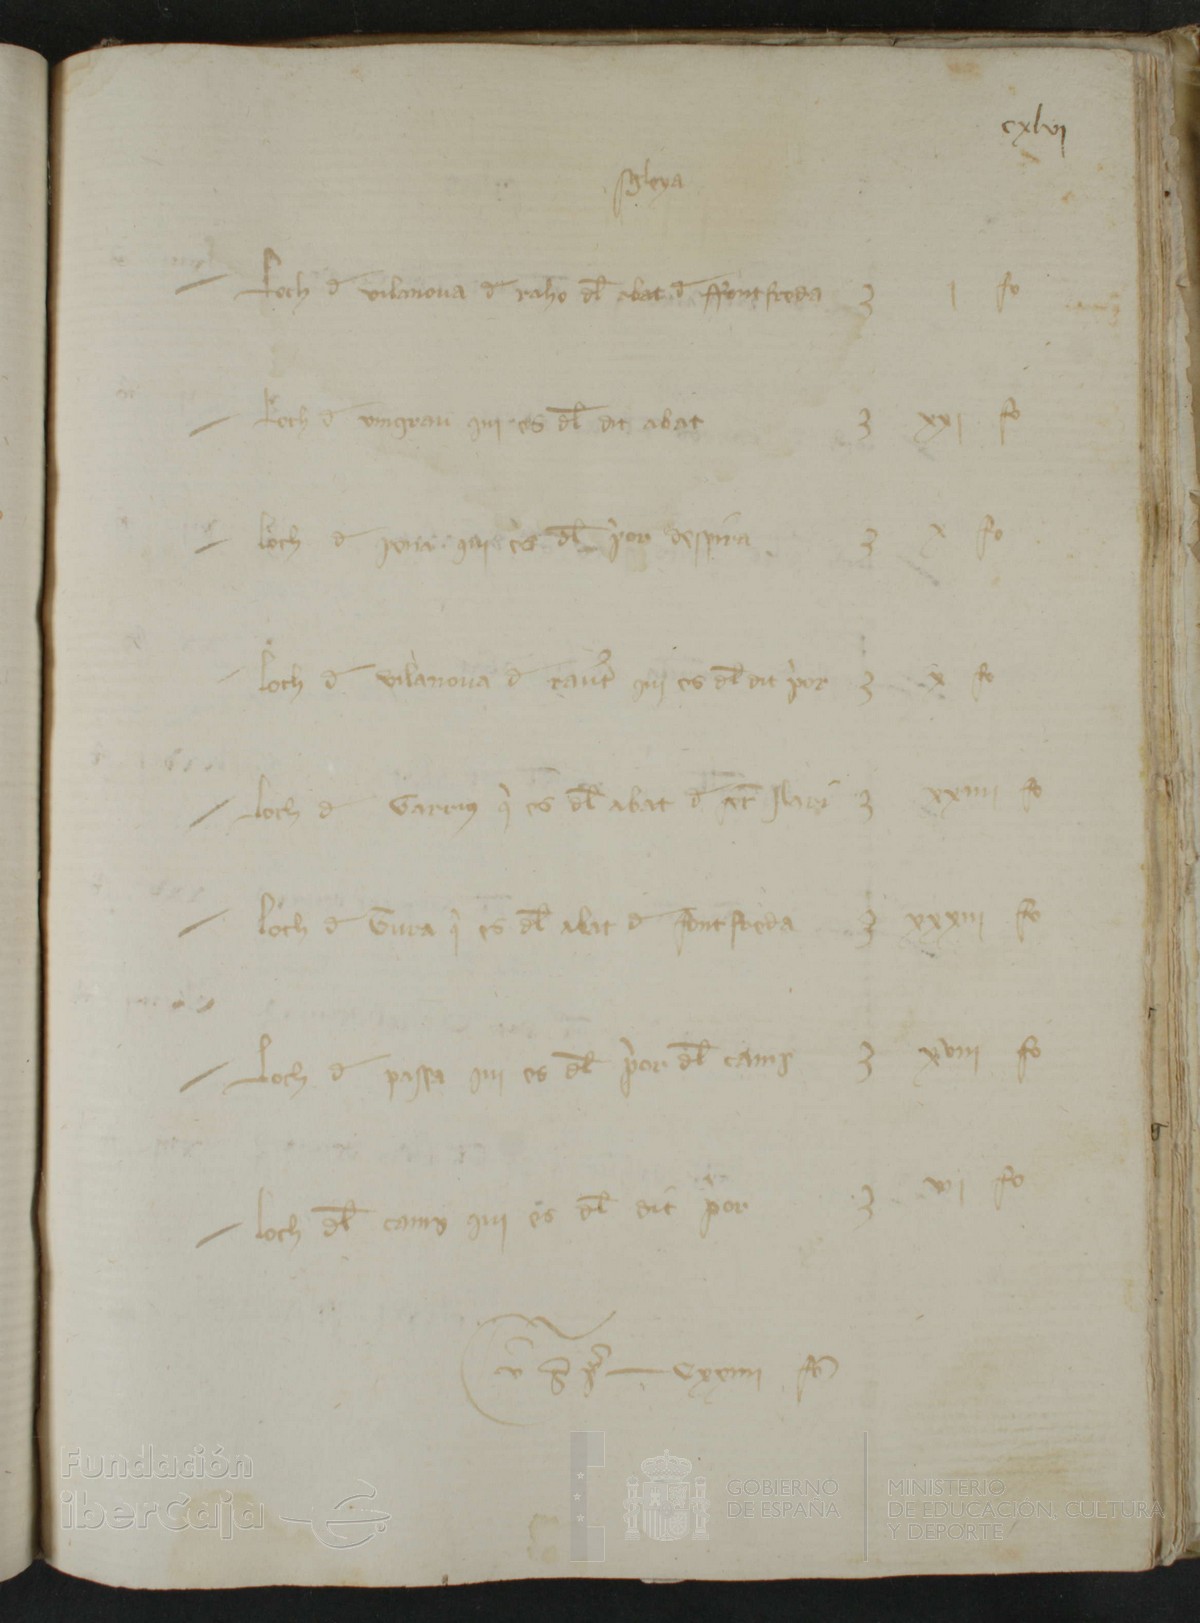 cxlvj
Sgleya
Loch d vilanova d raho dl abat d ffontfreda j fo
Loch d vingrau qui es dl dit abat xxj fo
loch d qui es dl pior despira x fo
loch d vilanova d qui es dl dit pior x fo
loch d Garrius q es dl abat d st Ilari xxiiij fo
loch d q es dl abat d fontfreda xxxiij fo
Loch d passa qui es dl pior dl camp xviij fo
loch dl camp qui es dl dit pior vj fo
Cxxiiij fo
Fundación
iberCaja
GOBIERNO
DE ESPAÑA
MINISTERIO
DE EDUCACIÓN, CULTURA
Y DEPORTE